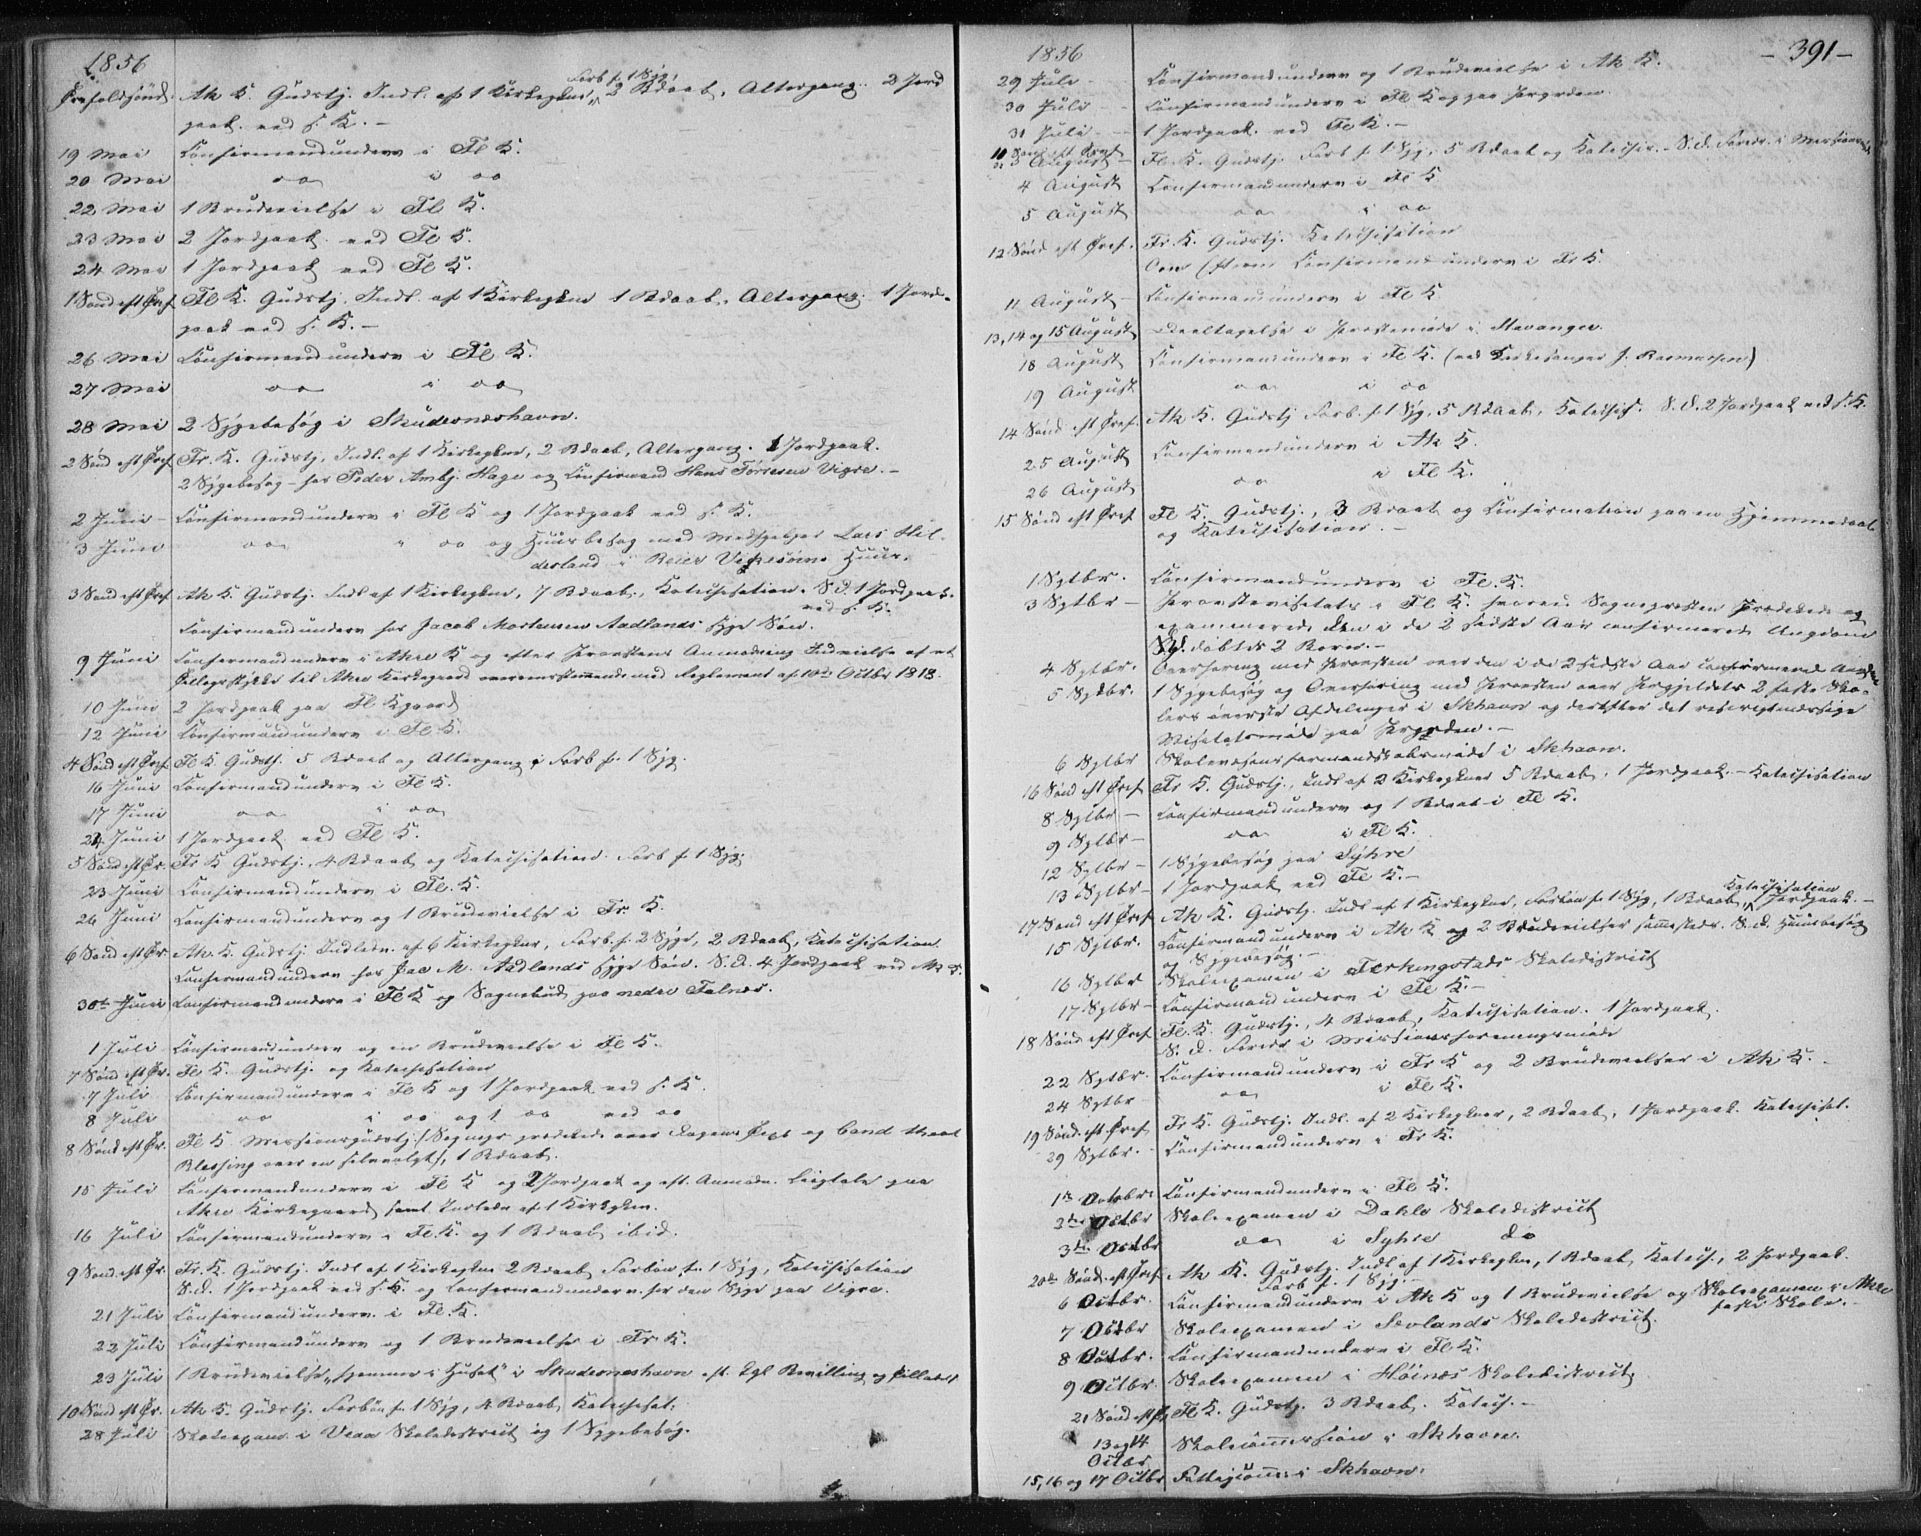 1856
Trefoldsönd. Ak K. Gudstj. Indl. af 1 Kirkegkone, Forb f. 1 Syg, 2 Bdaab, Altergang. 2 Jord
paak. ved s. K. –
19 Mai Confirmandunderv i Fl K.
20 Mai oo i oo
22 Mai 1 Brudevielse i Fl K.
23 Mai 2 Jordpaak. ved Fl K.
24 Mai 1 Jordpaak ved Fl K.
1 Sönd eft Tref. Fl K. Gudstj. Indl. af 1 Kirkegkne 1 Bdaab, Altergang. 1 Jord-
paak ved s. K. –
26 Mai Confirmandunderv i Fl K.
27 Mai oo i oo
28 Mai 2 Sygebesög i Skudesneshavn.
2 Sönd eft Tref. Fr. K. Gudstj. Indl. af 1 Kirkegkne, 2 Bdaab, Altergang. 1 Jordpaak.
2 Sygebesög – hos Peder Ambj. Hage og Confirmand Hans Törresen Vigre. –
2 Juni – Confirmandunderv i Fl K og 1 Jordpaak ved s. K.
3 Juni oo " oo og Huusbesög med Medhjelper Lars Hil-
desland i Reier Vikesöens Huus.
3 Sönd eft Tref. Ak K. Gudstj. Indl af 1 Kirkegkne, 7 Bdaab, Katechisation. S. D. 1 Jordpaak.
ved s. K.
Confirmandunderv hos Jacob Mortensen Aadlands syge Sön.
9 Juni Confirmandunderv i Akre K og efter Provstens Anmodning Indvielse af et
Tillægsstykke til Akre Kirkegaard overensstemmende med Reglement af 10de Octbr 1818.
10 Juni 2 Jordpaak paa Fl Kgaard
12 Juni Confirmandunderv i Fl K.
4 Sönd eft Tref. Fl K Gudstj. 5 Bdaab og Altergang, Forb f. 1 Syg.
16 Juni Confirmandunderv i Fl K.
17 Juni oo i oo
21 Juni 1 Jordpaak ved Fl K.
5 Sönd eft Tr. Fr K Gudstj., 4 Bdaab og Katechisation. Forb f. 1 Syg.
23 Juni Confirmandunderv i Fl. K.
26 Juni Confirmandunderv og 1 Brudevielse i Fr K.
6 Sönd eft Tr. Ak. K. Gudstj. Indledn. af 6 Kirkegkner, Forb. f. 2 Syge, 2 Bdaab, Katechisation
Confirmandunderv hos Jac M. Aadlands syge Sön. S. D. 4 Jordpaak ved Ak K.
30te Juni Confirmandunderv i Fl K og Sognebud paa nedre Falnes.
1 Juli Confirmandunderv og en Brudevielse i Fl K.
7 Sönd eft Tr. Fl K. Gudstj. og Katechisation
7 Juli Confirmandunderv i Fl K og 1 Jordpaak ved s. K.
8 Juli oo i oo og 1 oo ved oo
8 Sönd eft Tr. Fl K Missionsgudstj. (Sognepr prædikede over Dagens Text og Cand theol
Blessing over en selvvalgt), 1 Bdaab.
15 Juli Confirmandunderv i Fl K og 2 Jordpaak og eft. Anmodn. Liigtale paa
Akre Kirkegaard samt Indledn af 1 Kirkegkne.
16 Juli Confirmandunderv i Fl. K. og 1 Bdaab ibid.
9 Sönd. eft Tr. Fr. K. Gudstj. Indl af 1 Kirkegkne 2 Bdaab Forbön f. 1 Syg, Katechisation
S. D. 1 Jordpaak ved s. K. og Confirmandunderv. hos den Syge paa Vigre.
21 Juli Confirmandunderv. i Fl. K.
22 Juli Confirmandunderv og 1 Brudevielse i Fr K.
23 Juli 1 Brudevielse "hjemme i Huset" i Skudesneshavn eft. Kgl Bevilling og Tilladelse
10 Sönd eft Tr. Ak K. Gudstj. Forbön f. 1 Syg, 4 Bdaab, Katechisat.
28 Juli Skoleexam. i Veaa Skoledistrict og 1 Sygebesög.
1856 – 391 –
29 Juli – Confirmandunderv og 1 Brudevielse i Ak K.
30 Juli – Confirmandunderv i Fl K og paa Prgrden.
31 Juli – 1 Jordpaak. ved Fl K. –
11 Sönd eft Tref 3 August – Fl. K. Gudstj. Forb f. 1 Syg, 5 Bdaab og Katechis. – S. D. Foredr. i Missionsm
4 August Confirmandunderv i Fl K
5 August oo i oo
12 Sönd eft Tref. Fr. K. Gudstj. Katechisation
Om Efterm Confirmandunderv i Fr K.
11 August – Confirmandunderv i Fl K
13, 14 og 15 August Deeltagelse i Provstemöde i Stavanger.
18 August Confirmandunderv i Fl K. (ved Kirkesanger J. Rasmussen)
19 August oo i oo
14 Sönd eft Tref. Ak K. Gudstj Forb. f. 1 Syg, 5 Bdaab, Katechis. S. D. 2 Jordpaak ved s. K.
25 August Confirmandunderv i Ak K.
26 August oo i Fl K.
15 Sönd eft Tref Fl K. Gudstj., 3 Bdaab og Confirmation paa en Hjemmedaab
og Katechisation. –
1 Sptbr. Confirmandunderv i Fl. K.
3 Sptbr – Provstevisitats i Fl K. hvorun. Sognepresten prædikede og
examinerede den i de 2 sidste Aar confirmerede Ungdom
S. D. döbtes 2 Börn. –
4 Sptbr. Overhöring med Provsten over den i de 2 sidste Aar confirmerede Ungdom
5 Sptbr. 1 Sygebesög og Overhöring med Provsten over Prgjeldets 2 faste Sko-
lers överste Afdelinger i Skhavn og derefter det reserigtmæssige
Visitatsmöde paa Prgrden. –
6 Sptbr Skolevæsens formandskabsmöde i Skhavn.
16 Sönd eft Tref. Fr K. Gudstj., Indl af 2 Kirkegkner 5 Bdaab, 1 Jordpaak. – Katechisation
8 Sptbr – Confirmandunderv og 1 Bdaab i Fl K.
9 Sptbr – oo i Fl K.
12 Sptbr – 1 Sygebesög paa Syhre
13 Sptbr – 1 Jordpaak ved Fl K. –
17 Sönd eft Tref. Ak K. Gudstj. Indl af 1 Kirkegkne, Forbön f. 1 Syg, 1 Bdaab, Katechisation Jordpaak. –
15 Sptbr. Confirmandunderv i Ak K og 2 Brudevielser sammesteds. S. D. Huusbesög
og Sygebesög. –
16 Sptbr Skoleexamen i Ferkingstads Skoledistrict
17 Sptbr – Confirmandunderv i Fl K. –
18 Sönd eft Tref. Fl. K. Gudstj., 4 Bdaab, Katechisation. 1 Jordpaak.
S. D. Foredr i Missionsforeningsmöde
22 Sptbr. Confirmandunderv i Fr K og 2 Brudevielser i Ak K.
24 Sptbr – oo i Fl K.
19 Sönd. eft Tref Fr K. Gudstj. Indl. af 2 Kirkegkner, 2 Bdaab, 1 Jordpaak. Katechisat.
29 Sptbr. – Confirmandunderv i Fr K.
1te October Confirmandunderv i Fl K.
2den Octbr Skoleexamen i Dahle Skoledistrict
3die Octbr oo i Syhre do
20de Sönd. eft Tref. Ak K. Gudstj. Indl af 1 Kirkegkne, 1 Bdaab, Katech., 2 Jordpaak.
Forb f. 1 Syg. –
6 Octbr. Confirmandunderv i Ak K og 1 Brudevielse og Skoleexamen i Akre
faste Skole. –
7 Octbr Skoleexamen i Sevlands Skoledistrict.
8 Octbr. Confirmandunderv i Fl K.
9 Octbr. Skoleexamen i Höines Skoledistrict
21 Sönd eft Tr. Fl K. Gudstj. 3 Bdaab. Katech. –
13 og 14 Octbr Skolecommission i Skhavn.
15, 16 og 17 Octbr Fattigcomm. i Skhavn.